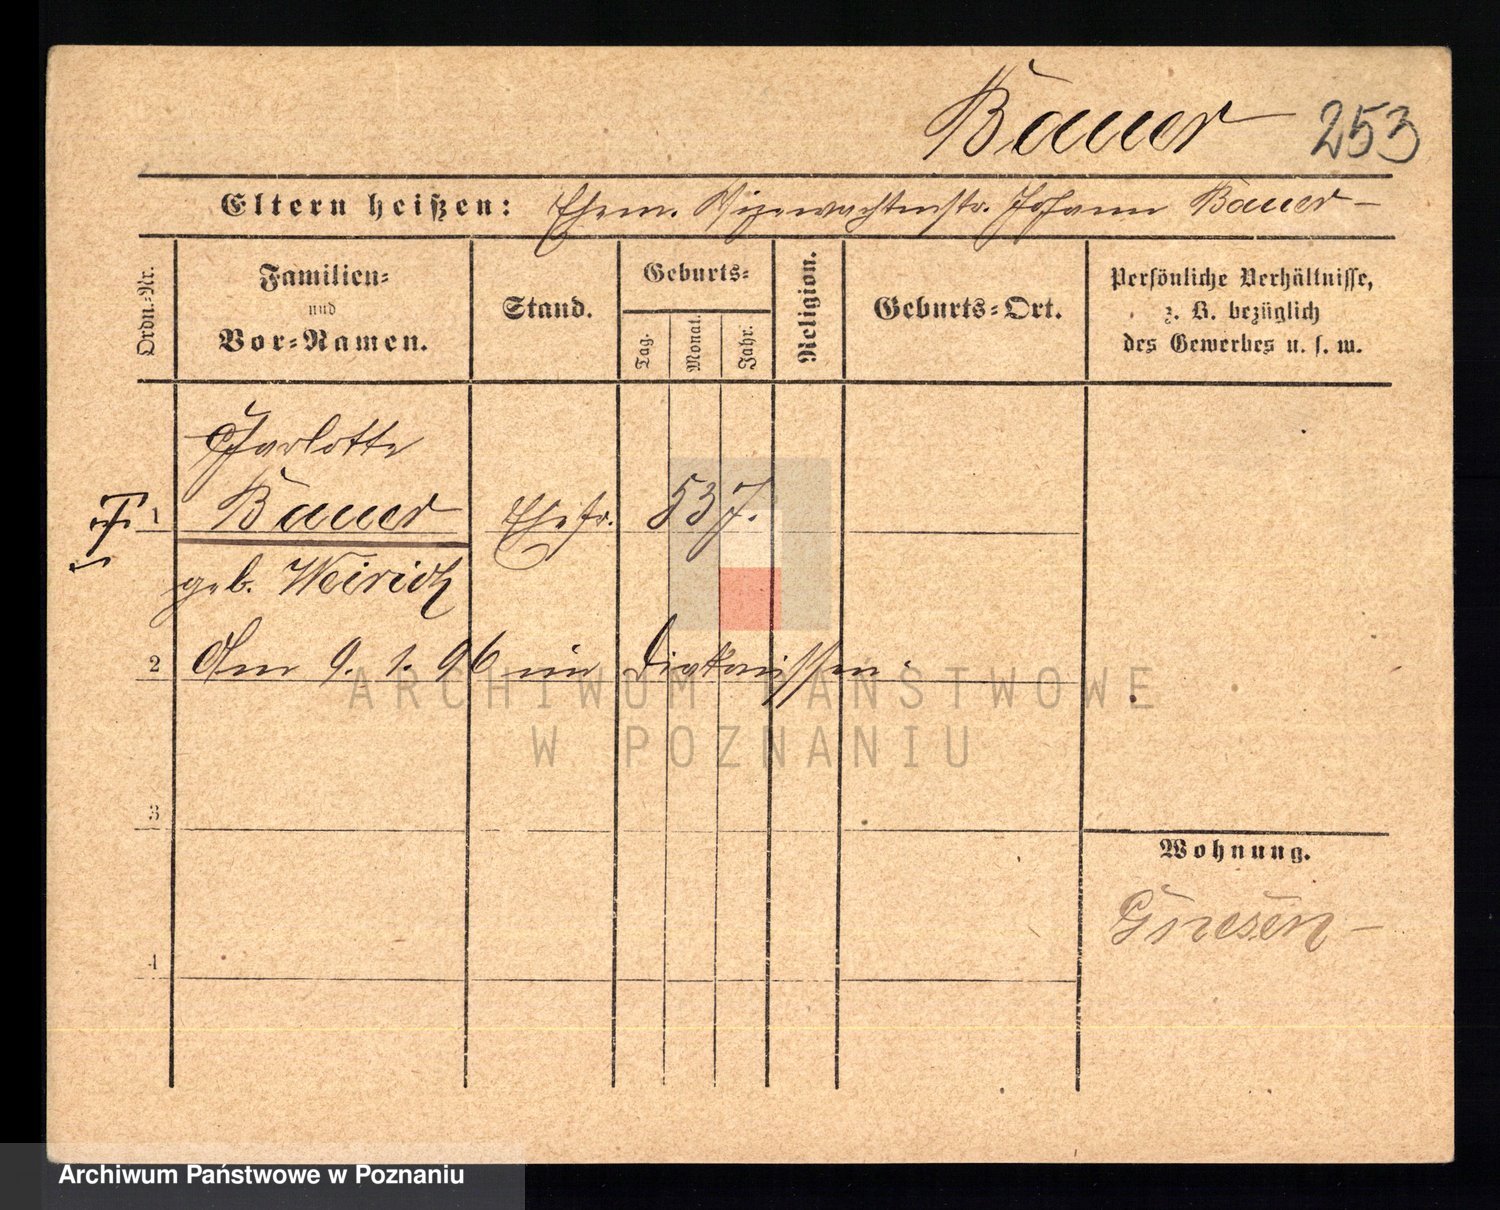 Bauer 253
Eltern heißen: Ehem. Vizewachtmstr. Johann Bauer –
Ordn.-Nr.
Familien-
und
Vor-Namen.
Stand.
Geburts-
Tag.
Monat.
Jahr.
Religion.
Geburts-Ort.
Persönliche Verhältnisse,
z. B. bezüglich
des Gewerbes u. s. w.
Charlotte
1 Bauer Ehefr. 53 J.
geb. Weirich
2 Am 9. 1. 96 im Diakonissen.
3
Wohnung.
Gnesen –
4
ARCHIWUM PAŃSTWOWE
W POZNANIU
Archiwum Państwowe w Poznaniu